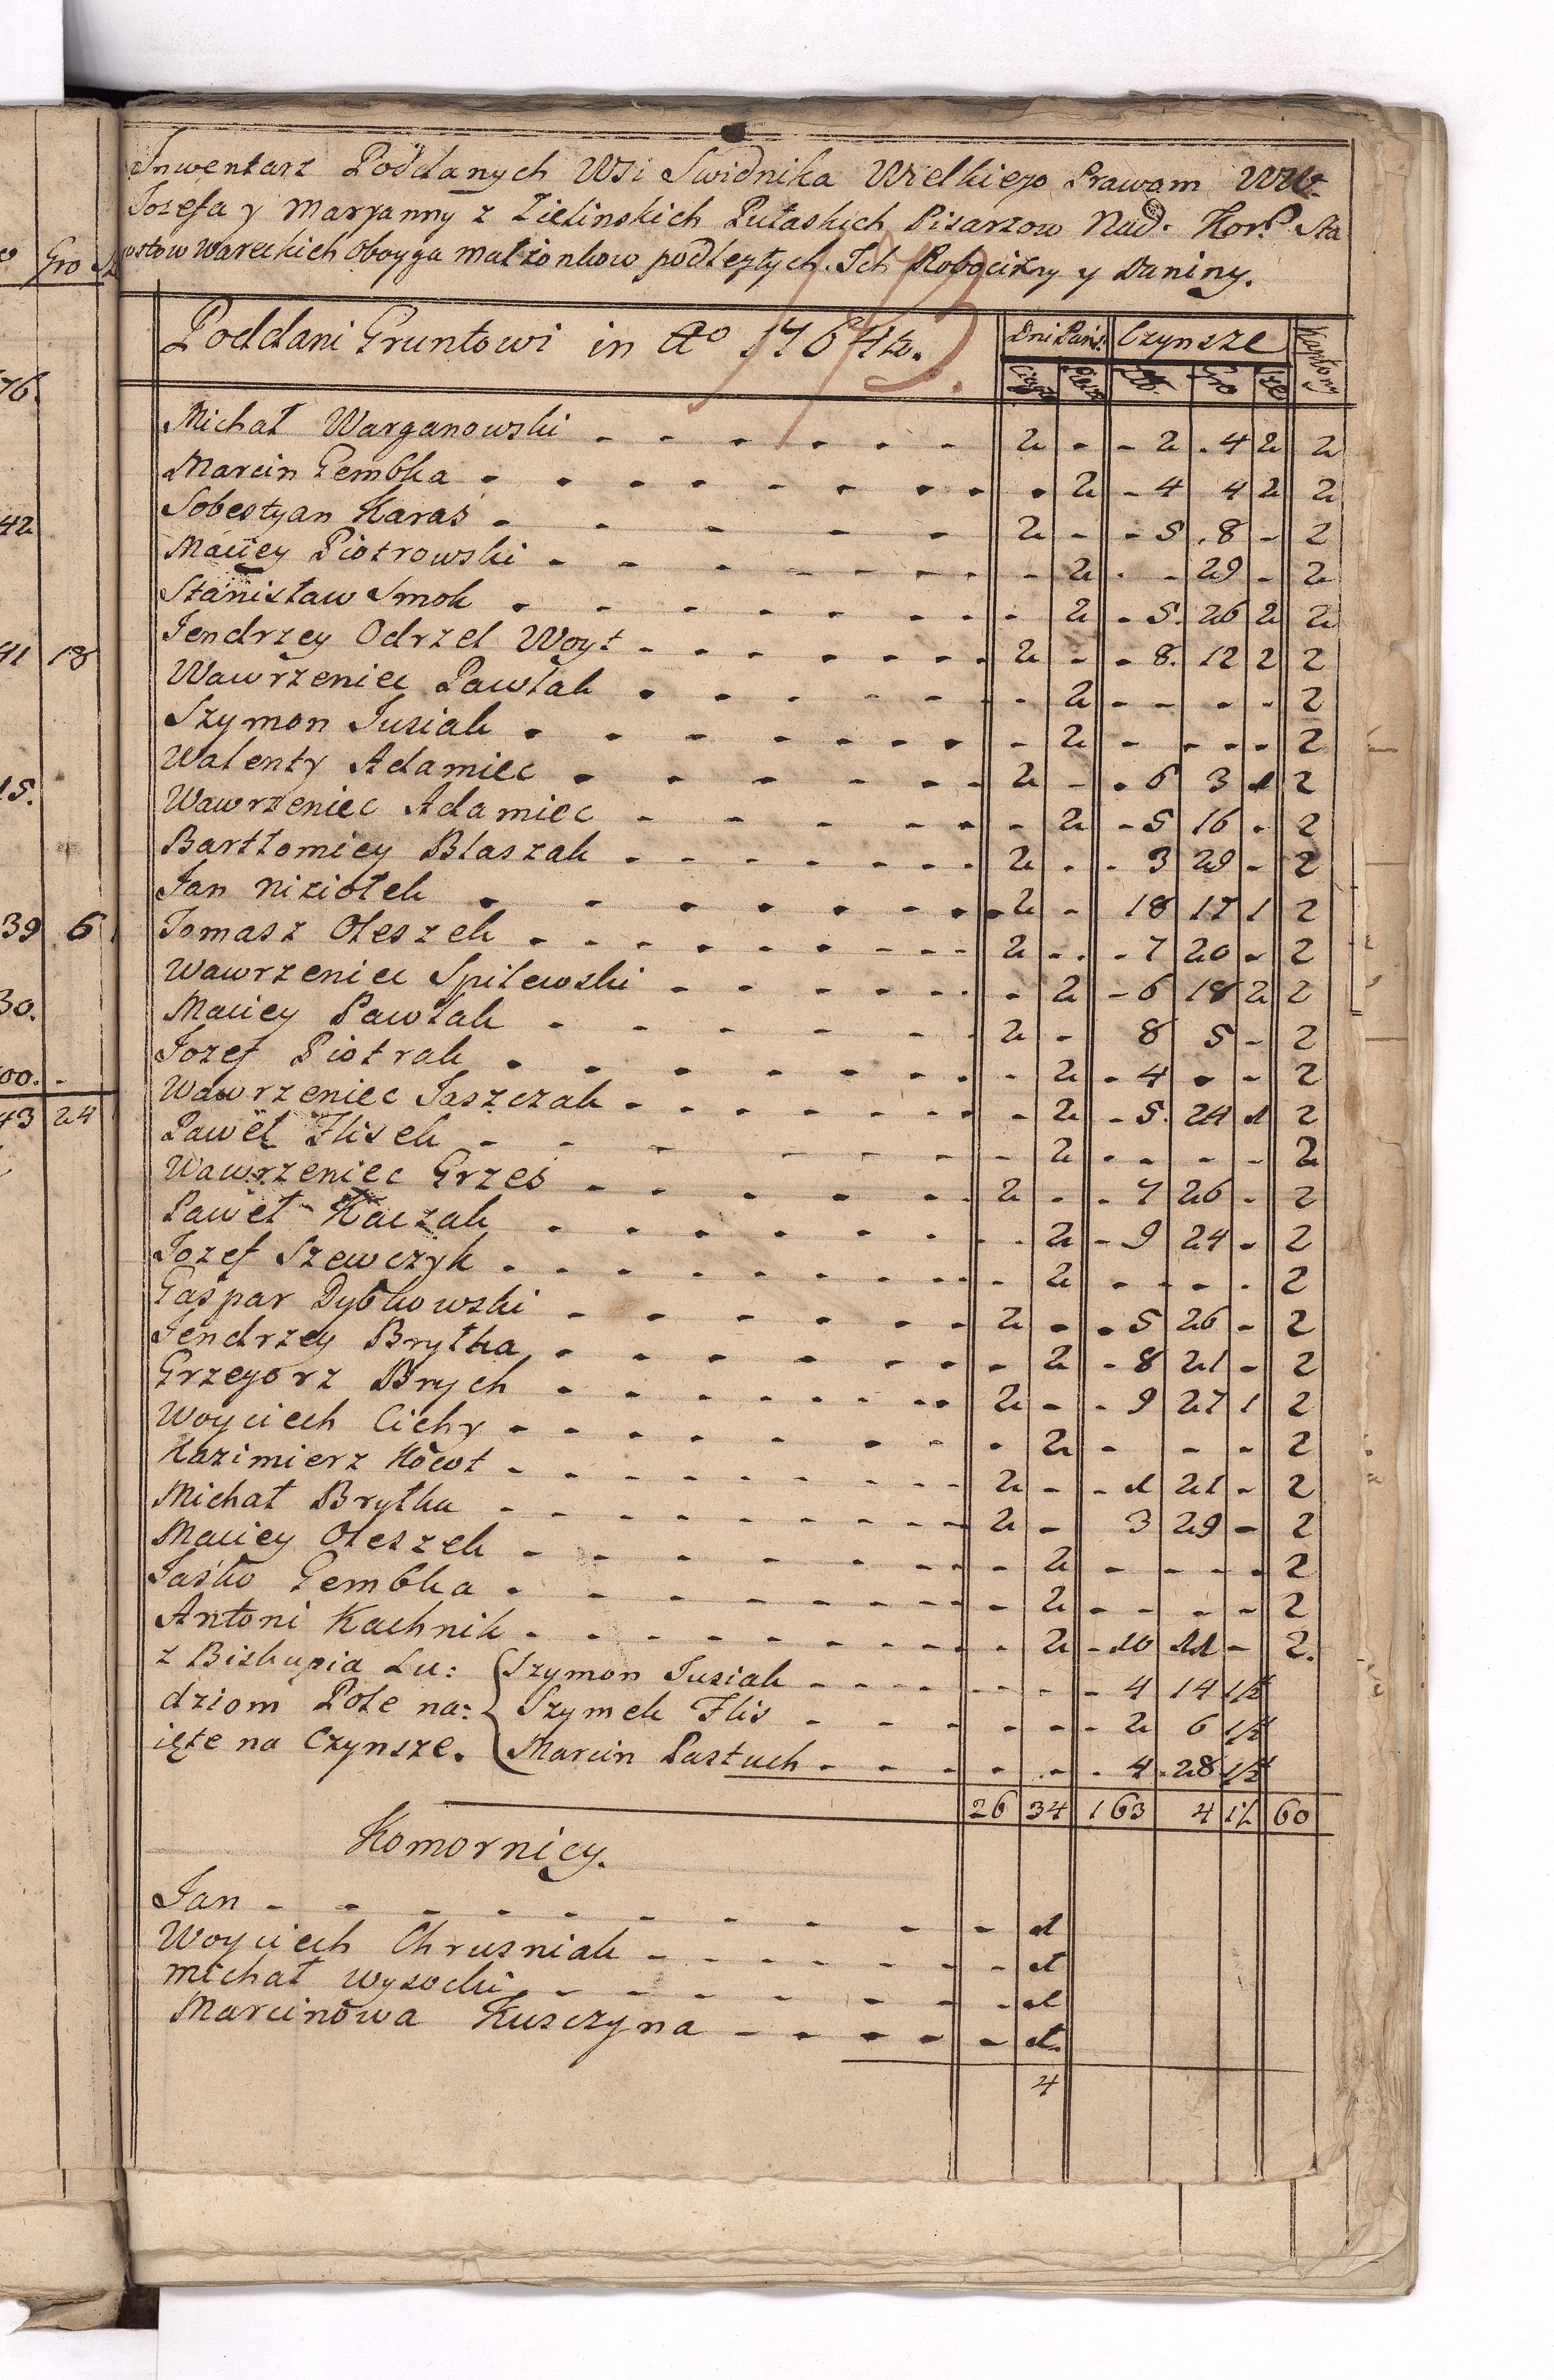 Inwentarz Poddanych Wsi Swidnika Wielkiego Prawom WW.
Jozefa y Maryanny z Zielinskich Pułaskich Pisarzow Nad. Kor. Sta
ostow Wareckich Oboyga małżonkow podległych. Ich Robocizny y Daniny.
Poddani Gruntowi in Ao 1764to.
Dni Pańs.
Czynsze
Kapłony
Ciągłe
Piesze
Zł.
Gro
Sze
Michał Warganowski - 2 - 2 4 2 2
Marcin Gembka - - 2 4 4 2 2
Sobestyan Karaś - 2 - 5 8 - 2
Maciey Piotrowski - - 2 - 29 - 2
Stanisław Smok - - 2 5. 26 2 2
Jendrzey Odrzel Woyt - 2 - 8. 12 2 2
Wawrzeniec Pawlak - - 2 - - - 2
Szymon Jusiak - - 2 - - - 2
Walenty Adamiec - 2 - 6 3 1 2
Wawrzeniec Adamiec - - 2 5 16 - 2
Bartłomiey Blaszak - 2 - 3 29 - 2
Jan Niziołek - 2 - 18 17 1 2
Tomasz Oleszek - 2 - 7 20 - 2
Wawrzeniec Spilewski - - 2 6 18 2 2
Maciey Pawlak - 2 - 8 5 - 2
Jozef Piotrak - - 2 4 - - 2
Wawrzeniec Jaszczak - - 2 5. 24 1 2
Paweł Flisek - - 2 - - - 2
Wawrzeniec Grześ - 2 - 7 26 - 2
Paweł Kaczak - - 2 9 24 - 2
Jozef Szewczyk - - 2 - - - 2
Gaspar Dybkowski - 2 - 5 26 - 2
Jendrzey Brytka - - 2 8 21 - 2
Grzegorz Brych - 2 - 9 27 1 2
Woyciech Cichy - - 2 - - - 2
Kazimierz Kowt - 2 - 1 21 - 2
Michał Brytka - 2 - 3 29 - 2
Maciey Oleszek - - 2 - - - 2
Jaśko Gembka - - 2 - - - 2
Antoni Kachnik - - 2 10 11 - 2.
z Biskupia Lu: Szymon Jusiak - - - 4 14 1/2
dziom Pole na: Szymek Flis - - - 2 6 1/2
ięte na Czynsze. Marcin Pastuch - - - 4 28 1/2
26 34 163 4 1½ 60
Komornicy.
Jan - - 1
Woyciech Chrusniak - - 1
Michał Wysocki - - 1
Marcinowa Kusczyna - - 1.
4
76.
42
41 18
15.
39 6
30.
00. -
43 24
Gro